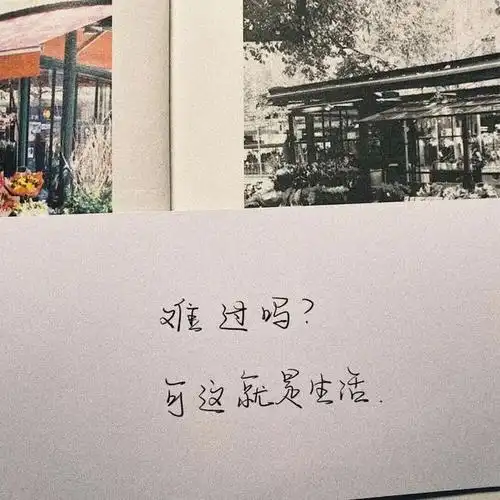 难过吗?
可这就是生活.